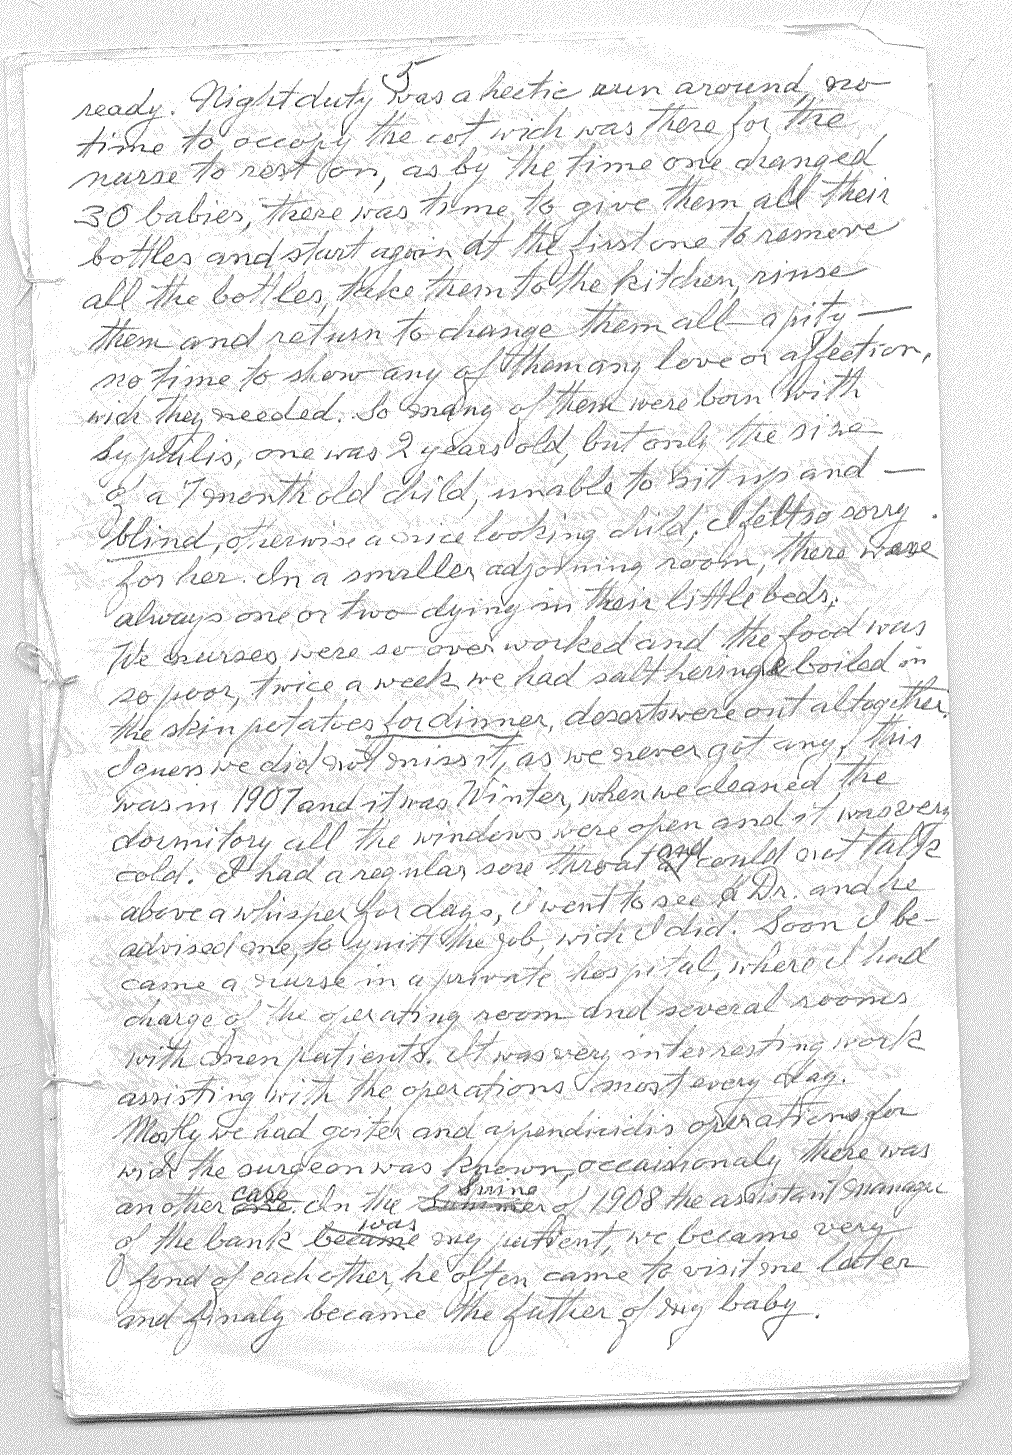 5
ready. Night duty was a hectic run around, no
time to occupy the cot wich was there for the
nurse to rest on, as by the time one changed
30 babies, there was time to give them all their
bottles and start again at the first one to remove
all the bottles, take them to the kitchen, rinse
them and return to change them all – a pity –
no time to show any of them any love or affection,
wich they needed. So many of them were born with
Syphilis, one was 2 years old, but only the size
of a 7 month old child, unable to sit up and –
blind, otherwise a nice looking child, I felt so sorry
for her. In a smaller adjoining room, there were
always one or two dying in their little beds;
We nurses were so over worked and the food was
so poor, twice a week we had salt hering & boiled in
the skin potatoes for dinner, deserts were out altogether.
I guess we did not miss it, as we never got any, this
was in 1907 and it was Winter, when we cleaned the
dormitory all the windows were open and it was very
cold. I had a regular sore throat and could not talk
above a whisper for days, I went to see a Dr. and he
advised me, to quitt the job, wich I did. Soon I be-
came a nurse in a private hospital, where I had
charge of the operating room and several rooms
with men patients. It was very interresting work
assisting with the operations most every day.
Mostly we had goiter and appendicidis operations, for
wich the surgeon was known, occaisionaly there was
an other one case. In the Summer Spring of 1908 the assistant manager
of the bank became was my patient, we became very
fond of each other, he often came to visit me later
and finaly became the father of my baby.